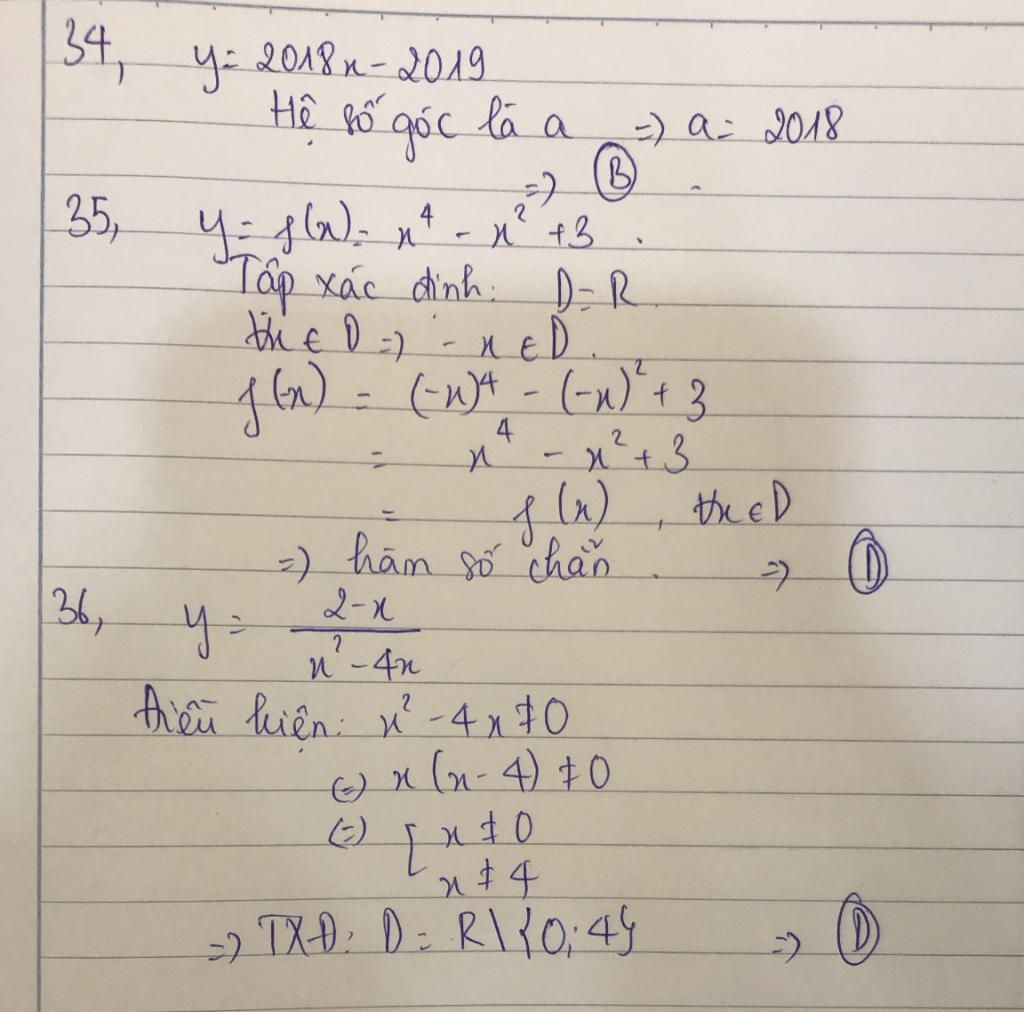 34, y = 2018x - 2019
Hệ số góc là a => a = 2018
=> B .
35, y = f(x) = x⁴ - x² + 3 .
Tập xác định: D = R.
∀x ∈ D => - x ∈ D.
f(-x) = (-x)⁴ - (-x)² + 3
= x⁴ - x² + 3
= f(x) , ∀x ∈ D
=> hàm số chẵn . => D
36, y = (2-x)/(x² - 4x)
Điều kiện: x² - 4x ≠ 0
(=) x (x - 4) ≠ 0
(=) [ x ≠ 0
x ≠ 4
=> TXĐ: D = R \ {0; 4} => D